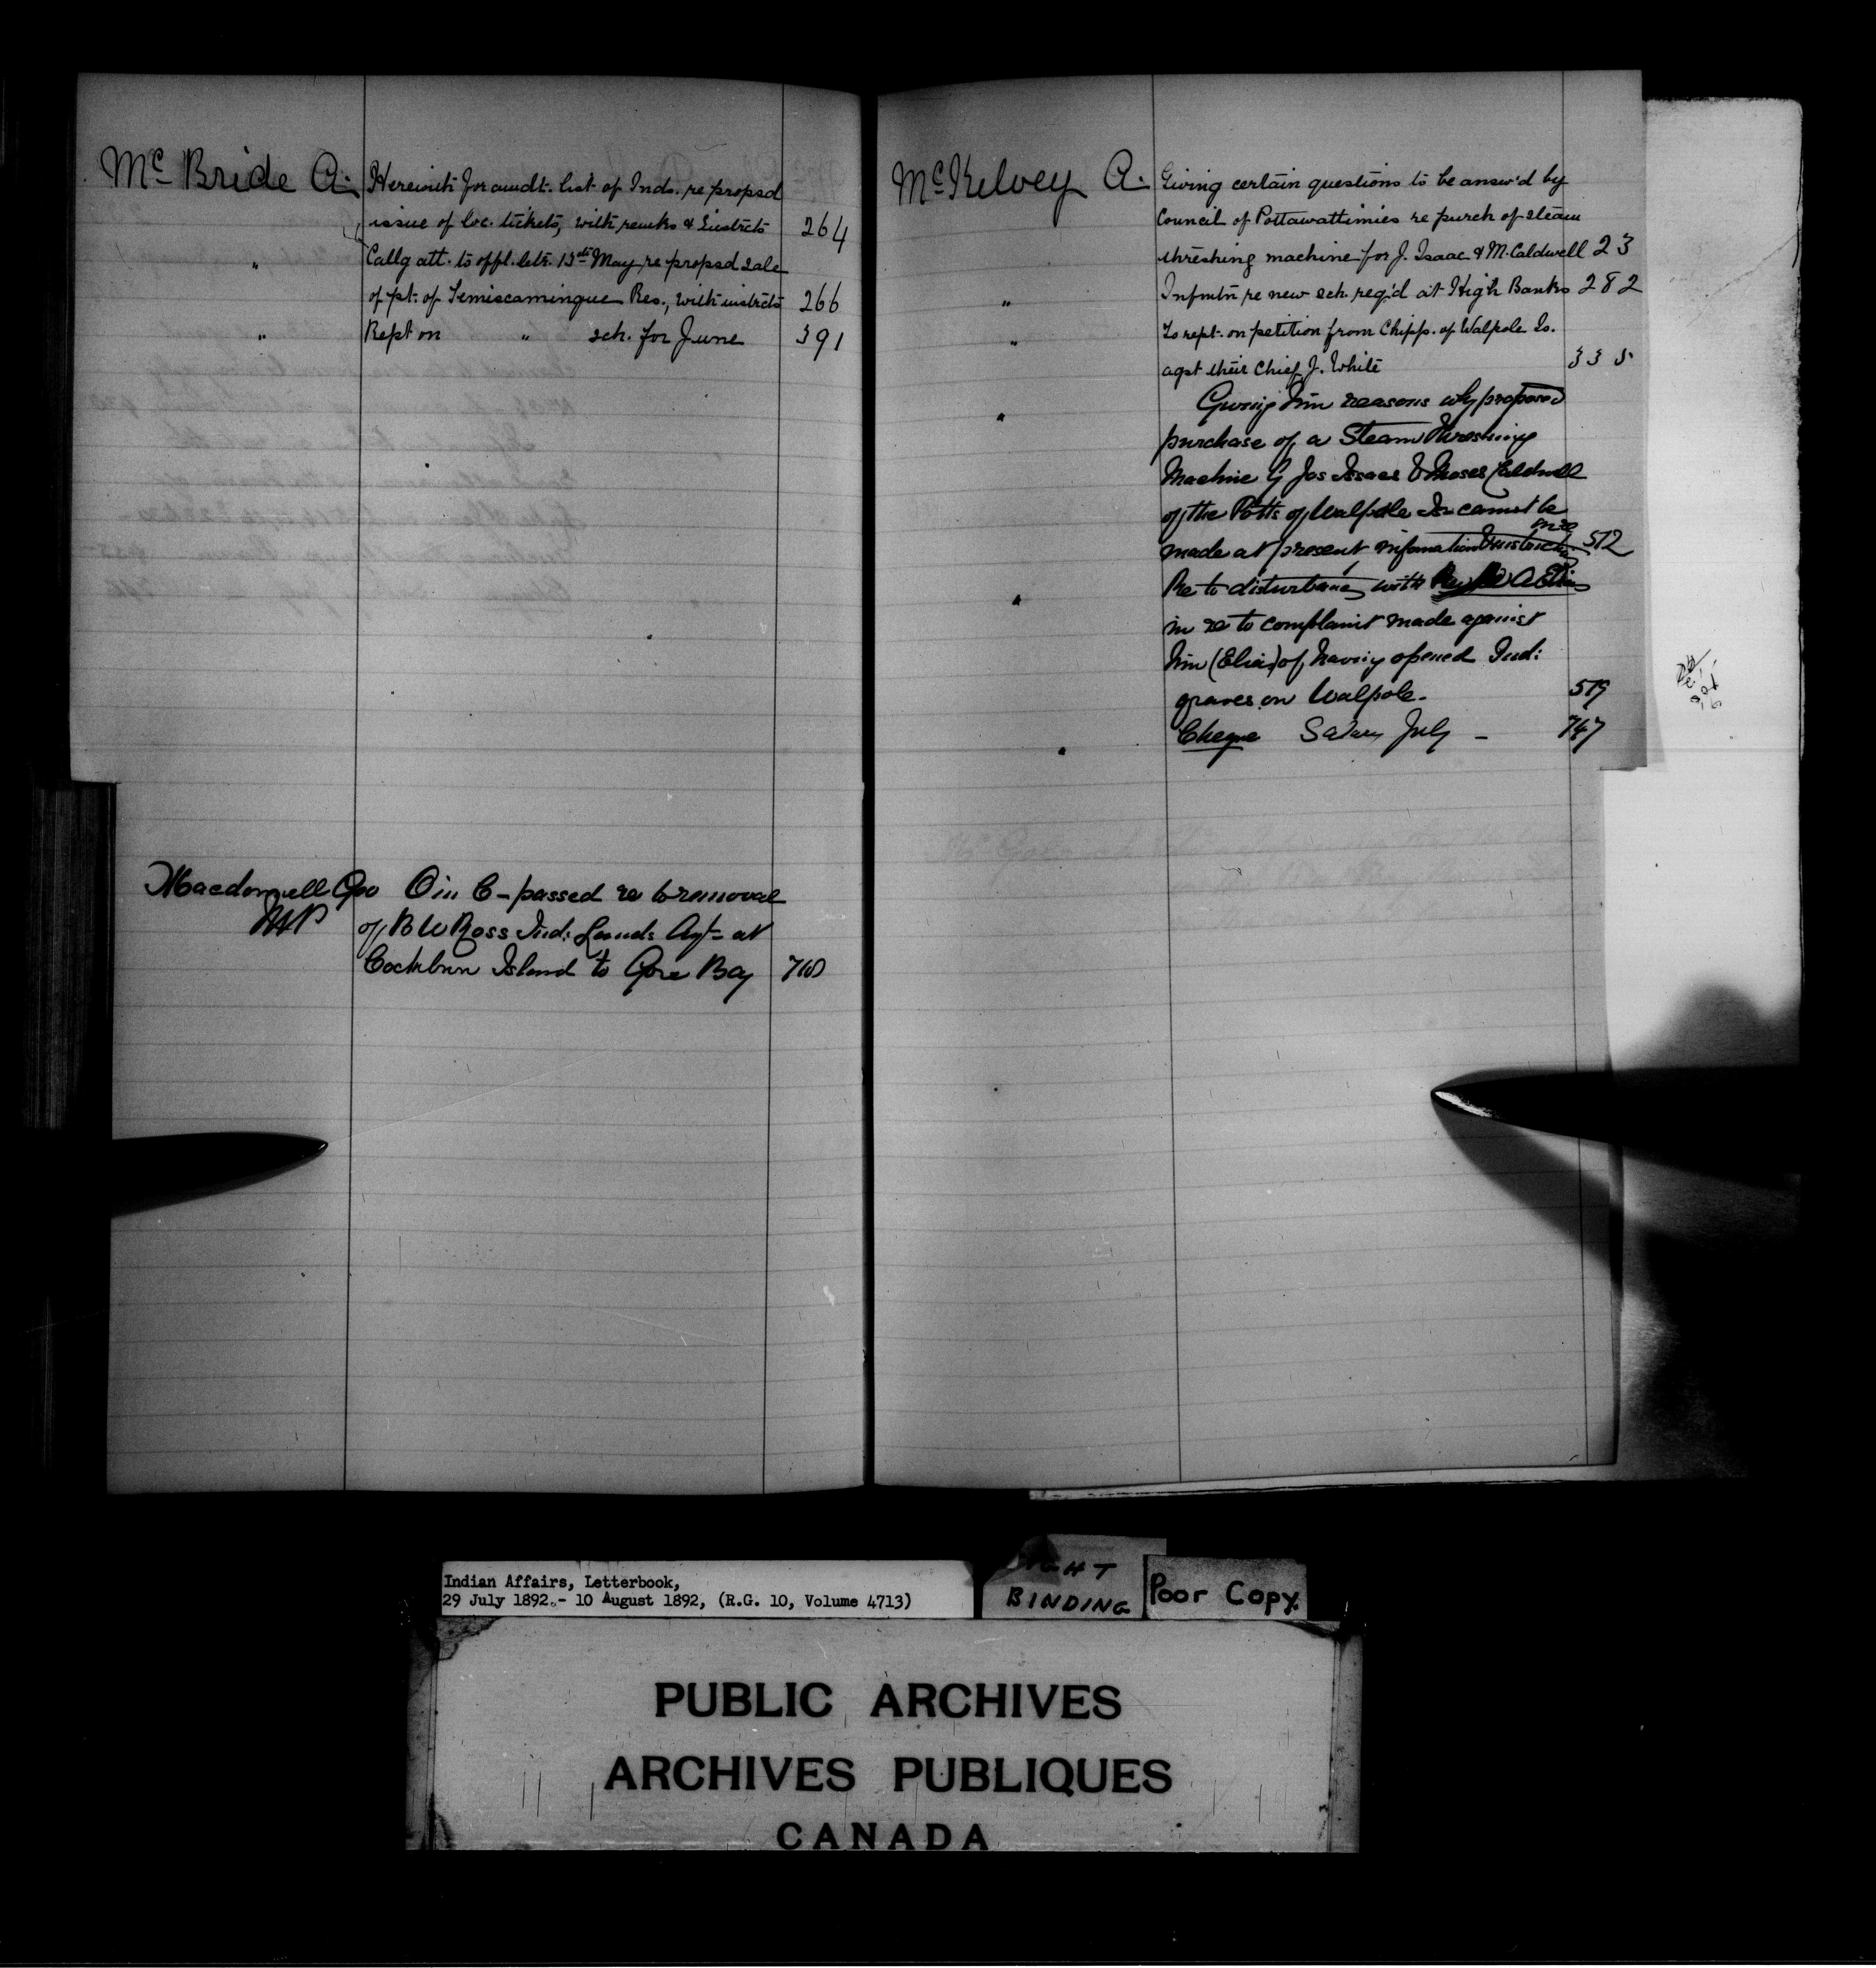 McBride A. Herewith for amdt. list of Inds. re propsd
issue of loc. tickets, with remks & instrcts 264
" Callg att. to offl. letr. 13th May re propsd sale
of pt. of Temiscamingue Res., with instrcts 266
" Rept on " sch. for June 391
Macdonnell Geo O in C - passed re to removal
MP of B W Ross Ind: Lands Agt at
Cockburn Island to Gore Bay
McKelvey A. Giving certain questions to be answ'd by
Council of Pottawattimies re purch of steam
threshing machine for J. Isaac & M. Caldwell 23
" Infmtn re new sch. req'd at High Banks 282
" To rept. on petition from Chipps. of Walpole Is.
agst their Chief J. White 335
" Giving him reasons why proposed
purchase of a Steam Threshing
Machine by Jas Isaacs & Moses Caldwell
of the Potts of Walpole Is cannot be
made at present, information & instructs. in re 512
" Re to disturbance with
in re to complaint made against
him (Elias) of having opened Ind:
graves on Walpole. 519
" Cheque Salary July - 747
Indian Affairs, Letterbook,
29 July 1892.- 10 August 1892, (R.G. 10, Volume 4713)
BINDING
Poor Copy.
PUBLIC ARCHIVES
ARCHIVES PUBLIQUES
CANADA